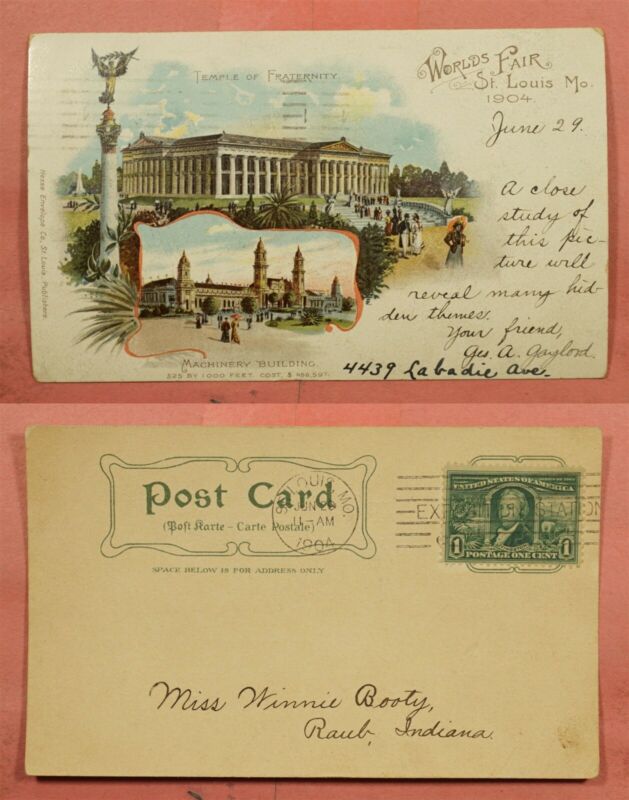 TEMPLE OF FRATERNITY.
WORLDS FAIR
ST. LOUIS MO.
1904.
June 29.
A close
study of
this pic-
ture will
reveal many hid-
den themes.
Your friend,
Geo. A. Gaylord.
4439 Labadie Ave.
MACHINERY BUILDING.
525 BY 1000 FEET. COST, $ 496,597.
Hesse Envelope Co., St. Louis, Publishers.
Post Card
(Post Karte - Carte Postale)
SPACE BELOW IS FOR ADDRESS ONLY
ST. LOUIS, MO.
JUN 29
11-AM
1904
STATION
UNITED STATES OF AMERICA
1 POSTAGE ONE CENT 1
Miss Winnie Booty,
Raub, Indiana.